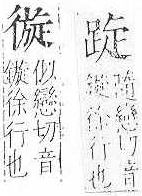 隨戀切音
鏇徐行也
似戀切音
鏇徐行也